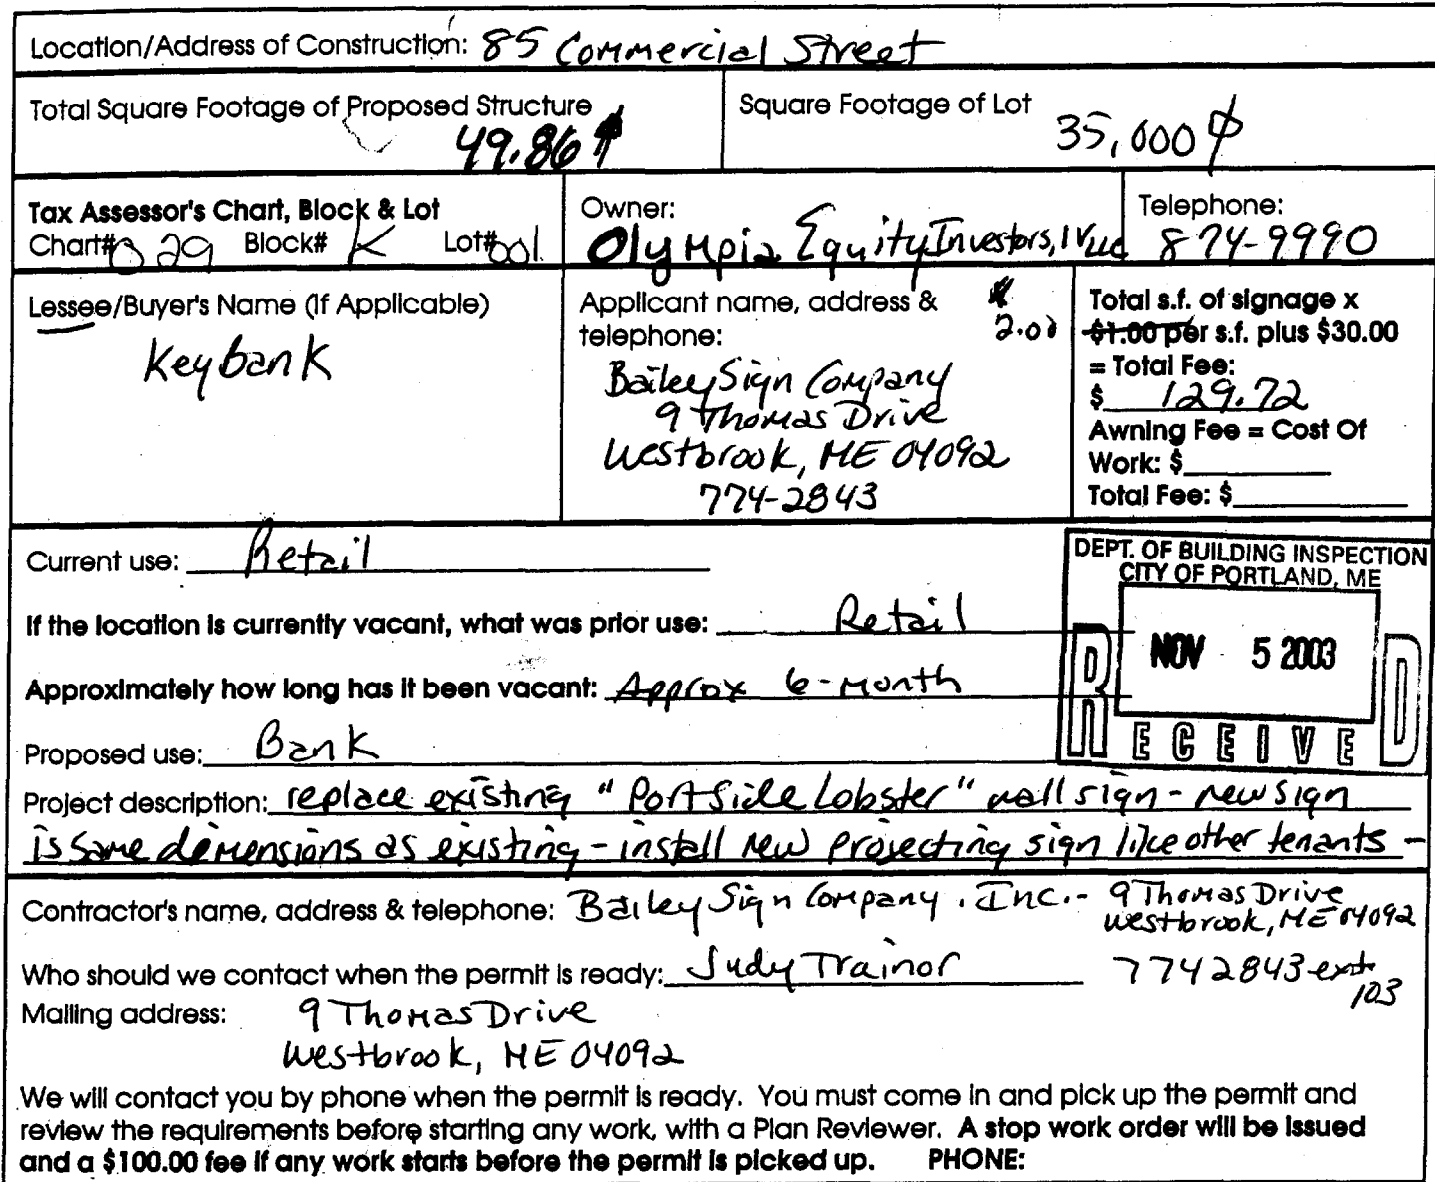 Location/Address of Construction: 85 Commercial Street
Total Square Footage of Proposed Structure
49.86
Square Footage of Lot
35,000
Tax Assessor's Chart, Block & Lot
Chart# 029 Block# K Lot# 001
Owner:
Olympia Equity Investors, IV LLC
Telephone:
874-9990
Lessee/Buyer's Name (If Applicable)
Keybank
Applicant name, address &
telephone:
Bailey Sign Company
9 Thomas Drive
Westbrook, ME 04092
774-2843
$
2.00
Total s.f. of signage x
$1.00 per s.f. plus $30.00
= Total Fee:
$ 129.72
Awning Fee = Cost Of
Work: $
Total Fee: $
Current use: Retail
If the location is currently vacant, what was prior use: Retail
Approximately how long has it been vacant: Approx 6-month
Proposed use: Bank
DEPT. OF BUILDING INSPECTION
CITY OF PORTLAND, ME
NOV 5 2003
RECEIVED
Project description: replace existing "Portside Lobster" wall sign - new sign
is same demensions as existing - install new projecting sign like other tenants -
Contractor's name, address & telephone: Bailey Sign Company, Inc. - 9 Thomas Drive
Westbrook, ME 04092
Who should we contact when the permit is ready: Judy Trainor 7742843 ext
103
Mailing address: 9 Thomas Drive
Westbrook, ME 04092
We will contact you by phone when the permit is ready. You must come in and pick up the permit and
review the requirements before starting any work, with a Plan Reviewer. A stop work order will be issued
and a $100.00 fee if any work starts before the permit is picked up. PHONE: